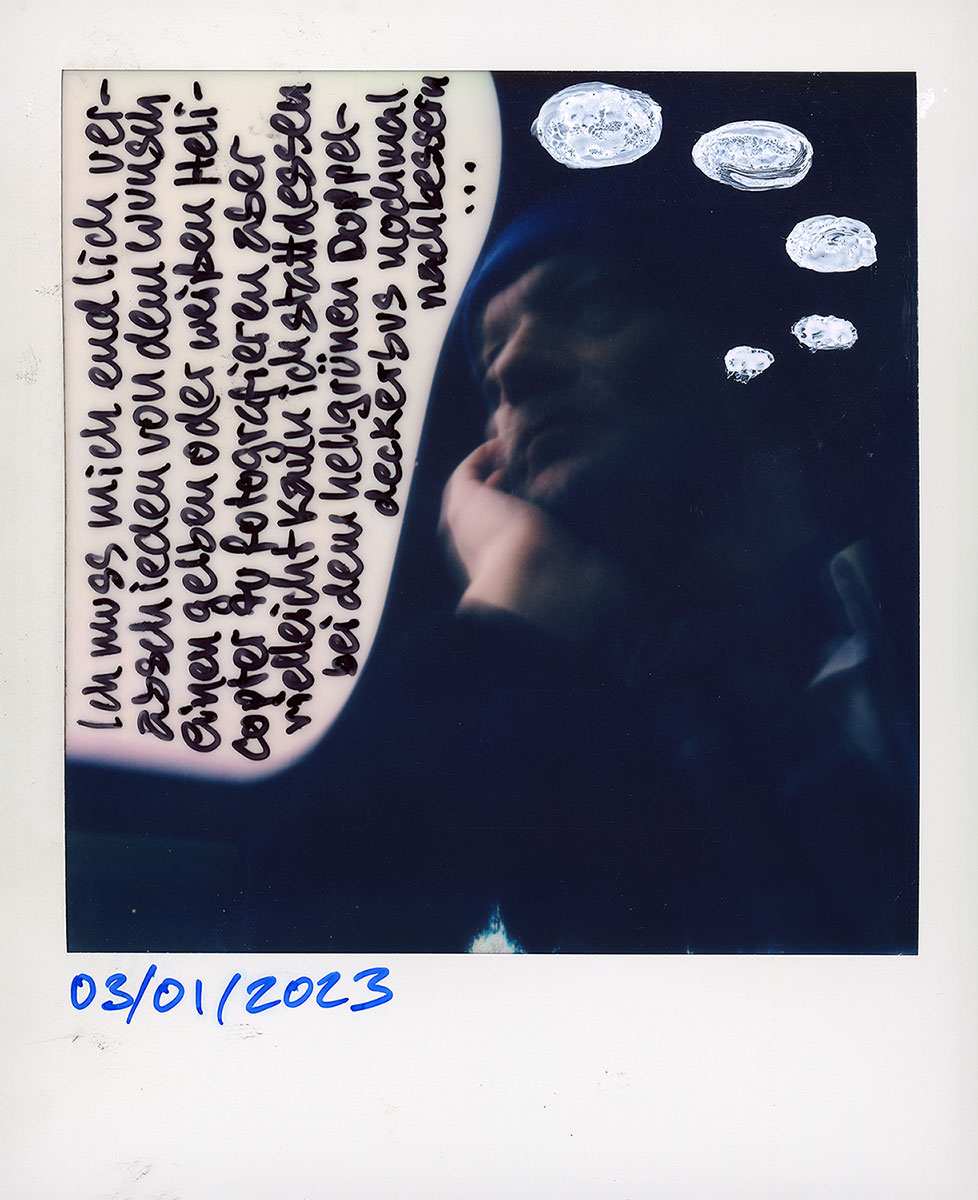 Ich muss mich endlich ver-
abschieden von dem wunsch
einen gelben oder weißen Heli-
copter zu fotografieren aber
vielleicht kann ich stattdessen
bei dem hellgrünen Doppel-
deckerbus nochmal
nachbessern
...
03/01/2023